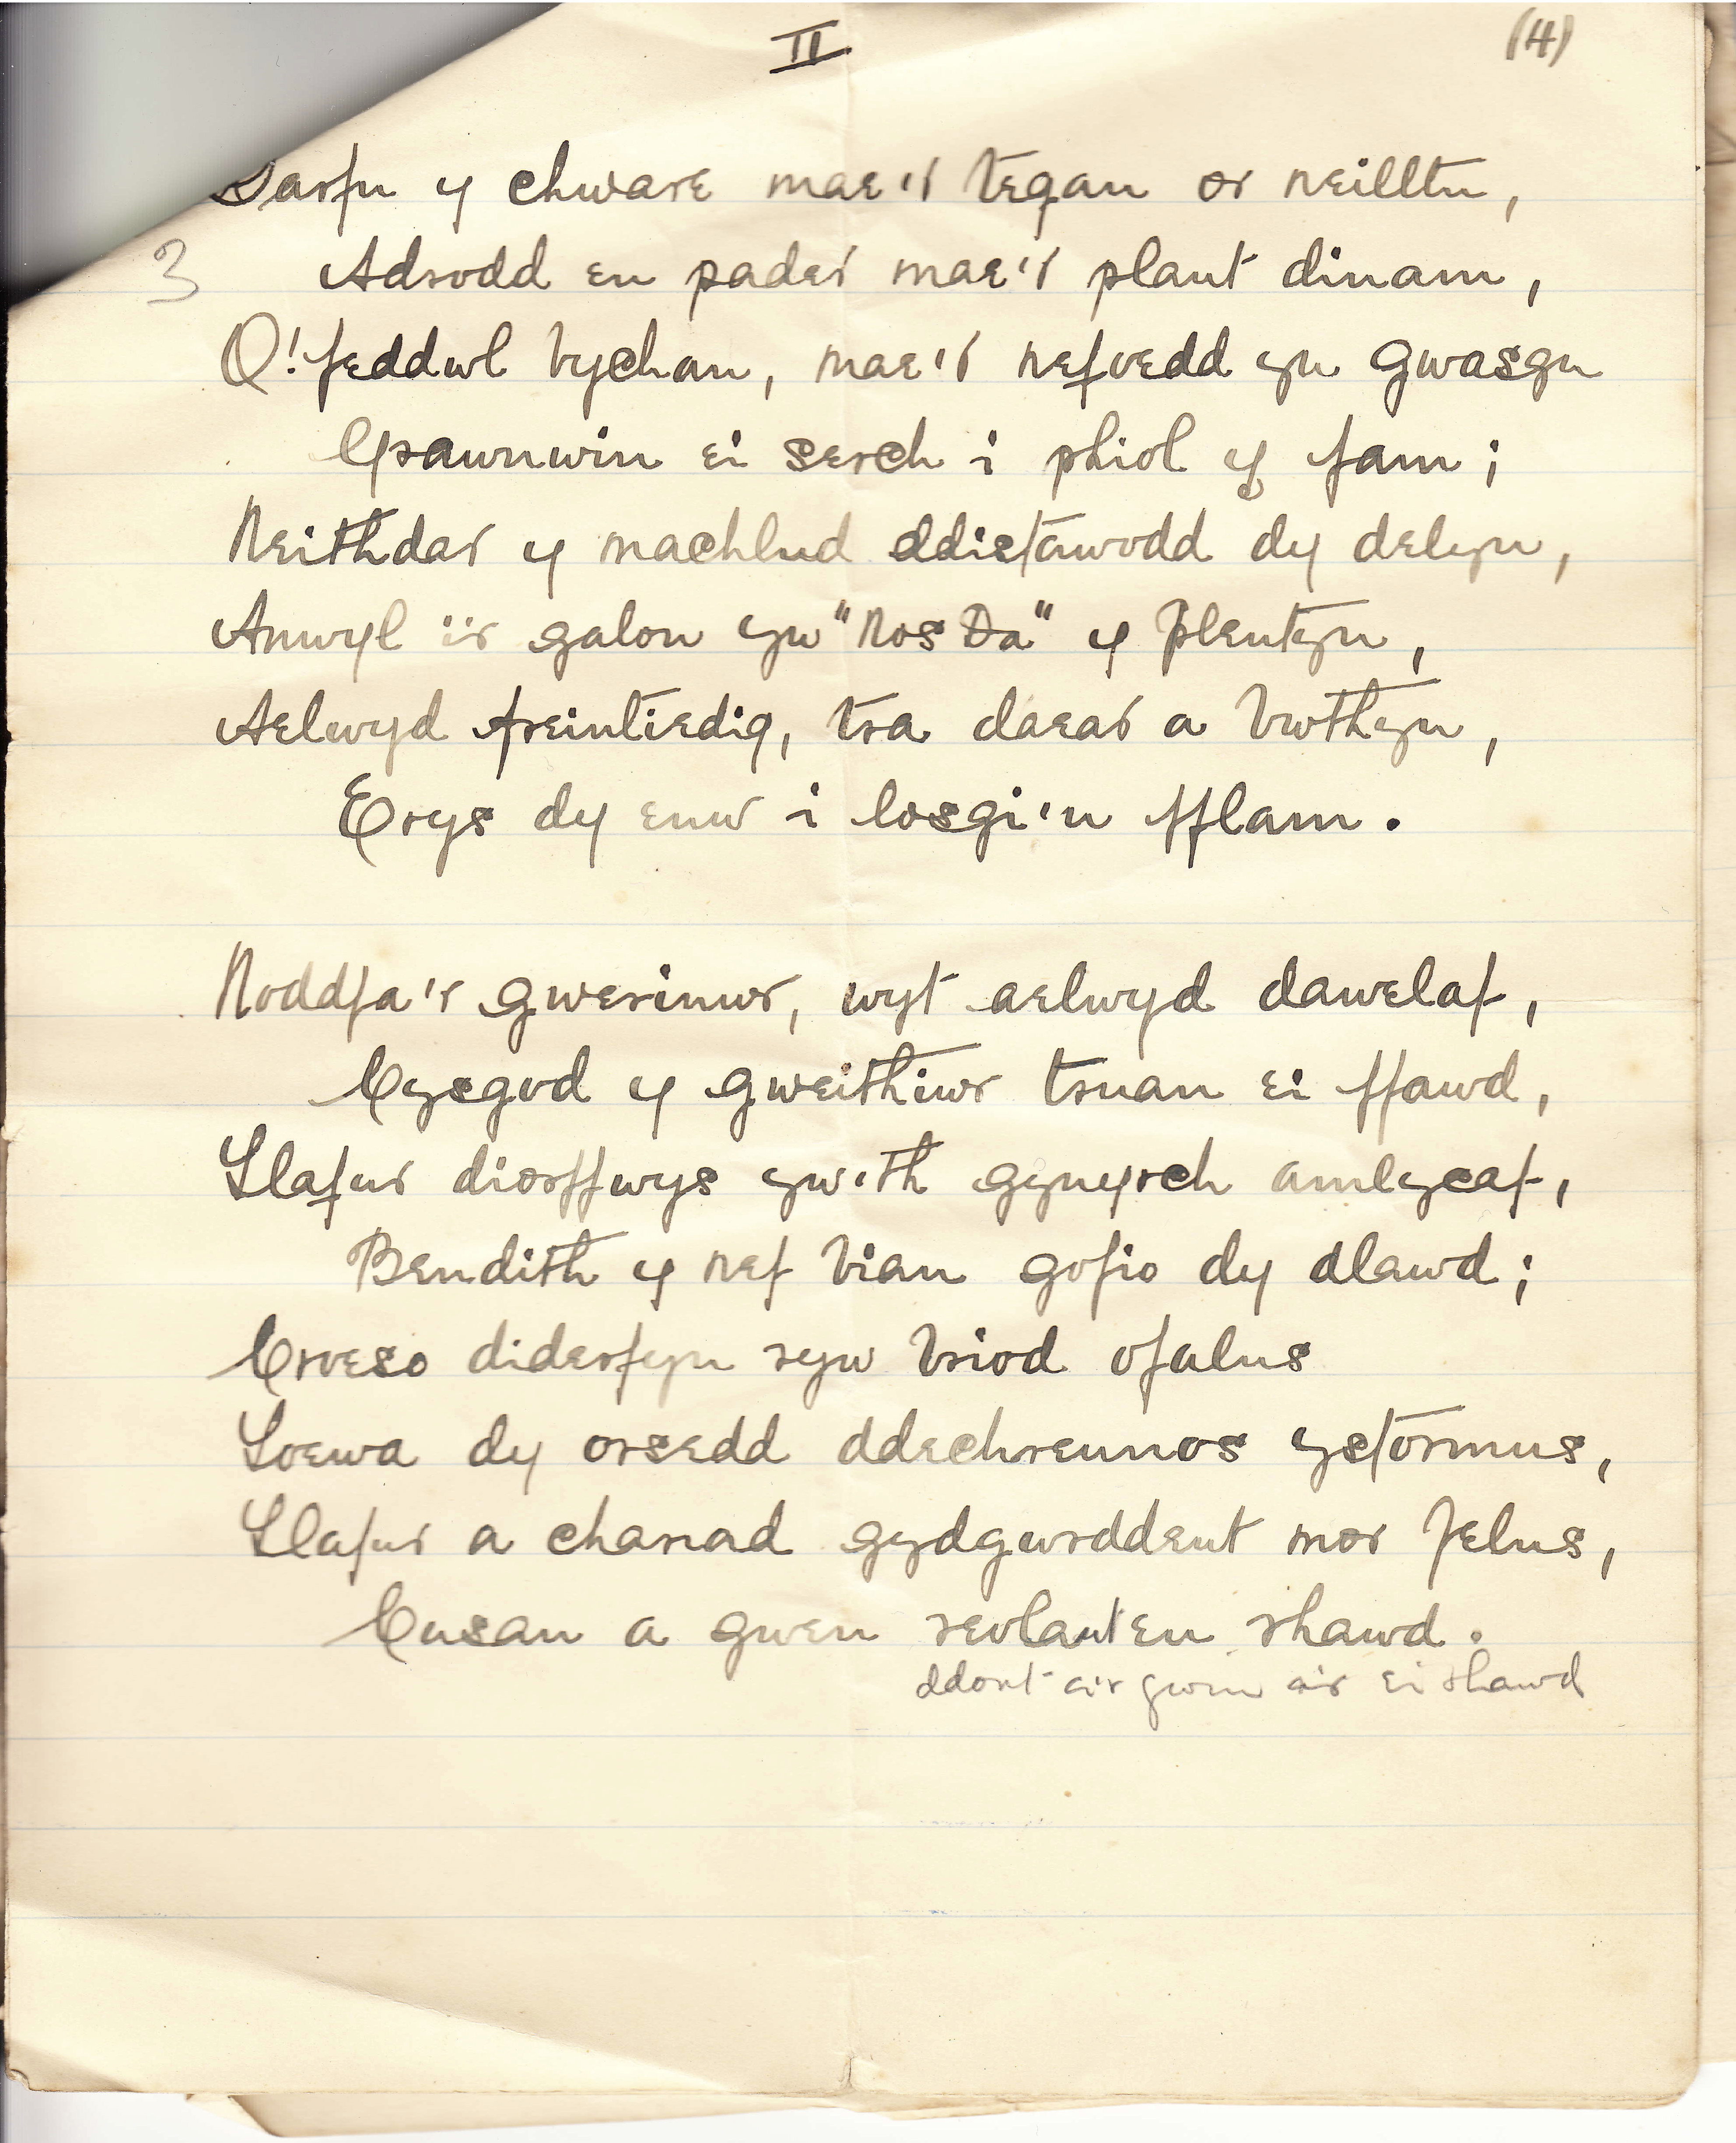 II (4)
Darfu y chware mae'r tegan or neilltu,
3 Adrodd eu pader mae'r plant dinam,
O! feddwl bychan, mae'r nefoedd yn gwasgu
Grawnwin ei serch i phiol y fam;
Neithdar y machlud ddistawodd dy delyn,
Anwyl i'r galon yw "Nos Da" y plentyn,
Aelwyd freintiedig, tra daear a bwthyn,
Erys dy enw i losgi'n fflam.
Noddfa'r gwerinwr, wyt aelwyd dawelaf,
Cysgod y gweithiwr truan ei ffawd,
Llafur diorffwys yw'th gynyrch amlycaf,
Bendith y nef bian gofio dy dlawd;
Croeso diderfyn ryw briod ofalus
Loewa dy orsedd ddechreunos ystormus,
Llafur a chariad gydgwrddent mor felus,
Cusan a gwen reolant eu rhawd.
ddont a'r gwin ar ei rhawd